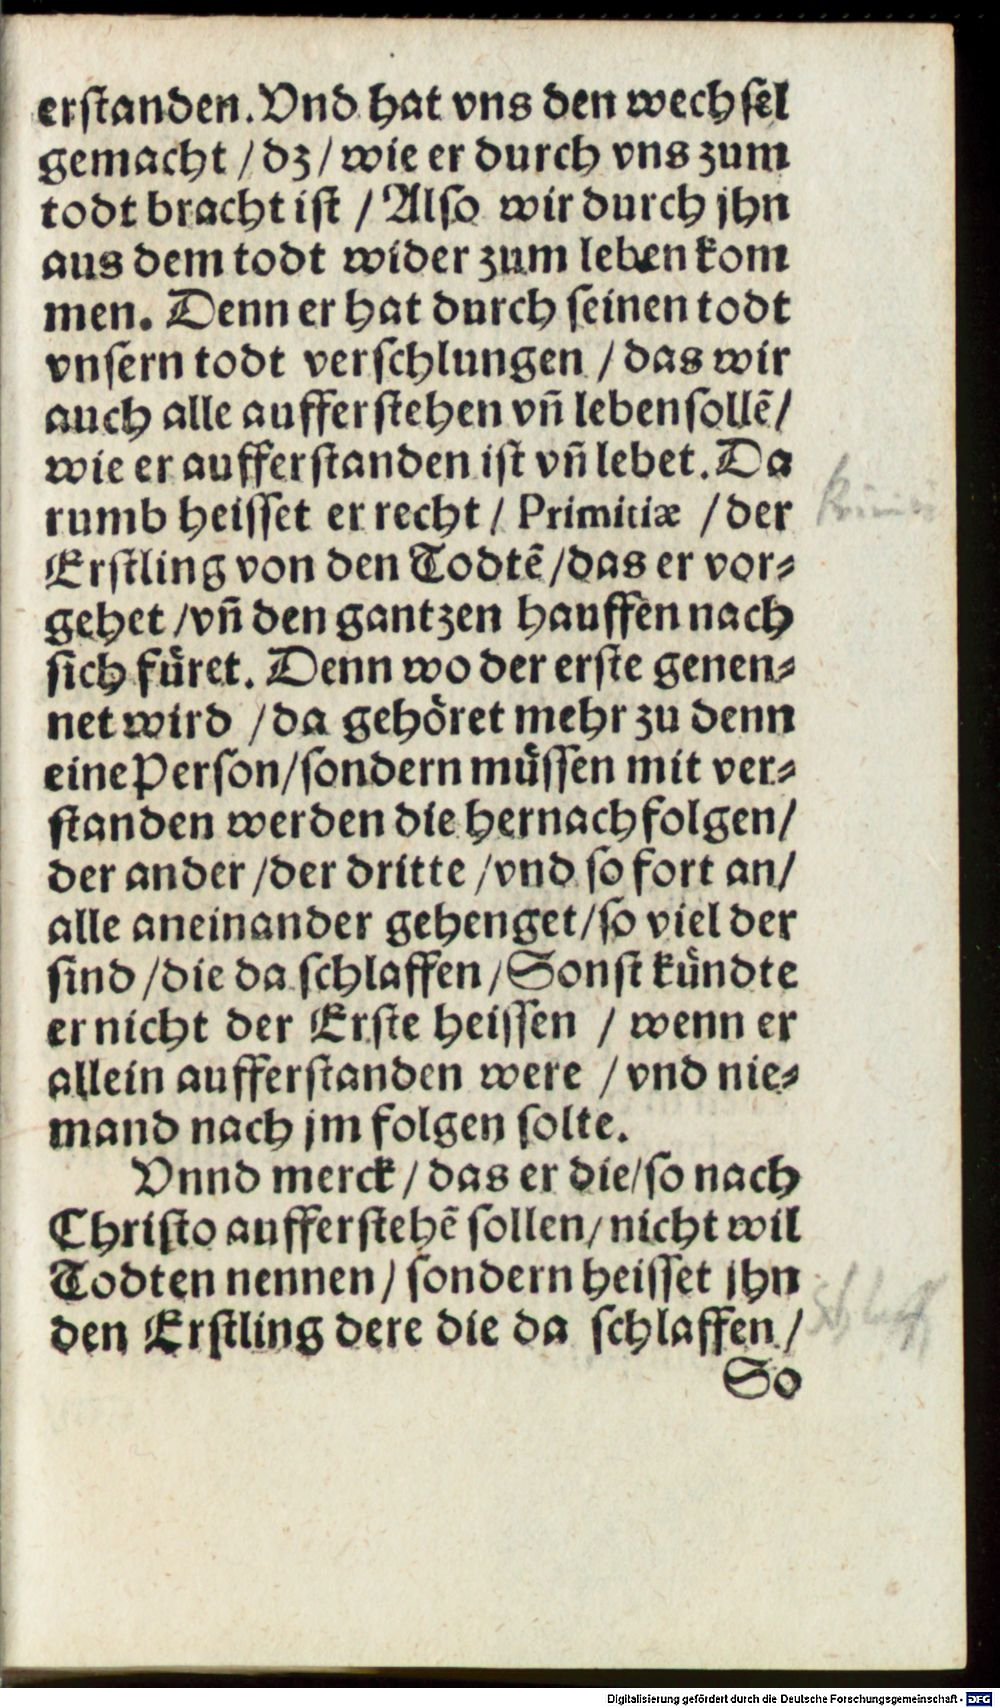 erſtanden. Vnd hat vns den wechſel
gemacht / dz / wie er durch vns zum
todt bracht iſt / Alſo wir durch jhn
aus dem todt wider zum leben kom
men. Denn er hat durch ſeinen todt
vnſern todt verſchlungen / das wir
auch alle aufferſtehen vñ leben ſollẽ /
wie er aufferſtanden iſt vñ lebet. Da
rumb heiſſet er recht / Primitiæ / der
Erſtling von den Todtẽ / das er vor-
gehet / vñ den gantzen hauffen nach
ſich füret. Denn wo der erſte genen-
net wird / da gehöret mehr zu denn
eine Perſon / ſondern müſſen mit ver-
ſtanden werden die hernach folgen /
der ander / der dritte / vnd ſo fort an /
alle aneinander gehenget / ſo viel der
ſind / die da ſchlaffen / Sonſt kündte
er nicht der Erſte heiſſen / wenn er
allein aufferſtanden were / vnd nie-
mand nach jm folgen ſolte.
Vnnd merck / das er die / ſo nach
Chriſto aufferſtehẽ ſollen / nicht wil
Todten nennen / ſondern heiſſet jhn
den Erſtling dere die da ſchlaffen /
So
Digitalisierung gefördert durch die Deutsche Forschungsgemeinschaft - DFG